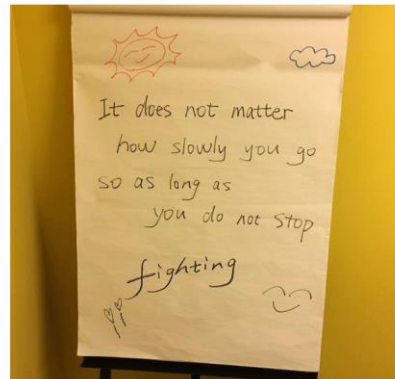 It does not matter
how slowly you go
so as long as
you do not stop
fighting